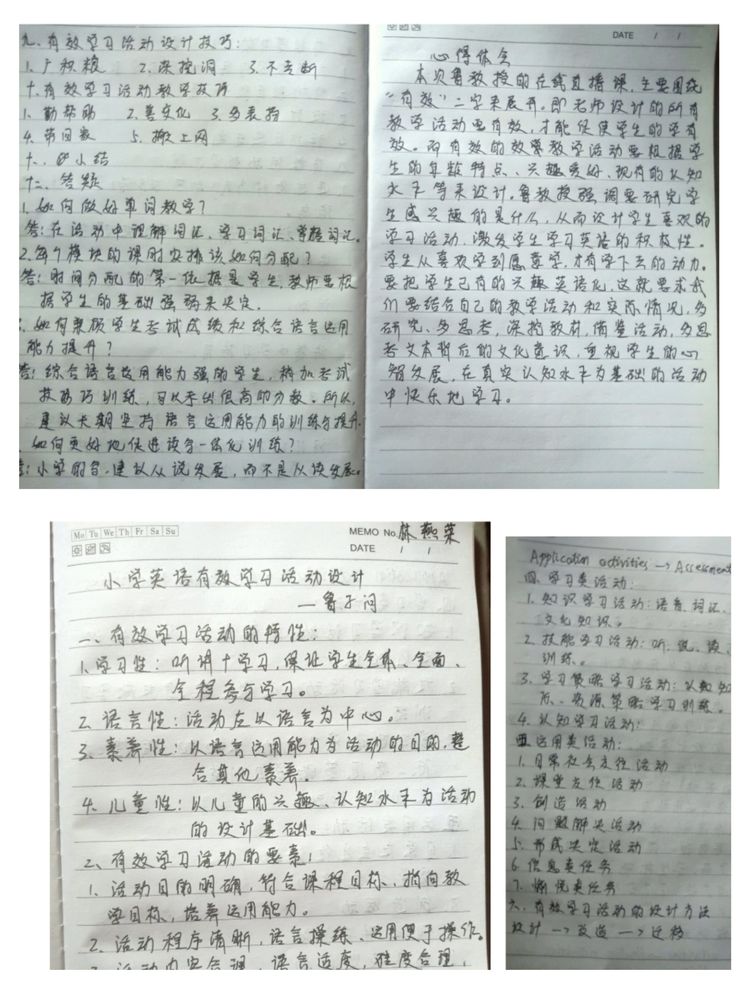 九、有效学习活动设计技巧:
1、广积粮 2、深挖洞 3、不走断
十、有效学习活动教学技巧
1、勤帮助 2、善变化 3、多表扬
4、带回教 5、搬上网
十一、小结
十二、答疑
1、如何做好单词教学?
答:在活动中理解词汇、学习词汇、掌握词汇。
2、每个模块的课时安排该如何分配?
答:时间分配的第一依据是学生,教师要根
据学生的基础强弱来决定。
如何兼顾学生考试成绩和综合语言运用
能力提升?
答:综合语言运用能力强的学生,稍加考试
技巧训练,可以考出很高的分数。所以,
建议长期坚持语言运用能力的训练与提升。
如何更好地促进读写一体化训练?
小学的写,建议从说发展,而不是从读发展。
DATE / /
心得体会
本次鲁教授的在线直播课,主要围绕
“有效”二字来展开。即老师设计的所有
教学活动要有效,才能促使学生的学有
效。而有效的效果教学活动要根据学
生的年龄特点、兴趣爱好、现有的认知
水平等来设计。鲁教授强调要研究学
生感兴趣的是什么,从而设计学生喜欢的
学习活动,激发学生学习英语的积极性。
学生从喜欢学到愿意学,才有学下去的动力。
要把学生已有的兴趣英语化,这就要求我
们要结合自己的教学活动和实际情况,多
研究、多思考,深挖教材,借鉴活动,多思
考文本背后的文化意识,重视学生的心
智发展,在真实认知水平为基础的活动
中快乐地学习。
Mo Tu We Th Fr Sa Su
MEMO No. 林燕荣
DATE / /
小学英语有效学习活动设计
—鲁子问
一、有效学习活动的特性:
1、学习性:听讲十学习,保证学生全体、全面、
全程参与学习。
2、语言性:活动应以语言为中心。
3、素养性:以语言运用能力为活动的目的,整
合其他素养。
4、儿童性:以儿童的兴趣、认知水平为活动
的设计基础。
二、有效学习活动的要素:
1、活动目的明确,符合课程目标、指向教
学目标,培养运用能力。
2、活动程序清晰,语言操练、运用便于操作。
3、活动内容合理,语言适度,难度合理,
Application activities —> Assessment
四、学习类活动:
1、知识学习活动:语音、词汇、
文化知识。
2、技能学习活动:听、说、读、
训练。
3、学习策略学习活动:认知、
际、资源策略学习训练。
4、认知学习活动:
五、运用类活动:
1、日常社会交往活动
2、课堂交往活动
3、创造活动
4、问题解决活动
5、形成决定活动
6、信息类任务
7、愉悦类任务
六、有效学习活动的设计方法
设计 —> 改造 —> 迁移